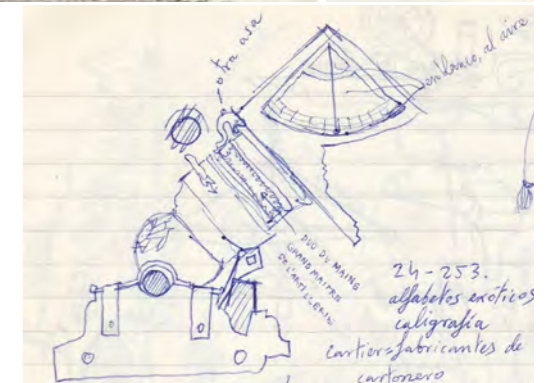 otra asa
en blanco, al aire
DUC DU MAINE
GRAND MAITRE
DE L'ARTILLERIE
24-253.
alfabetos exóticos
caligrafía
cartier=fabricantes de
cartonero